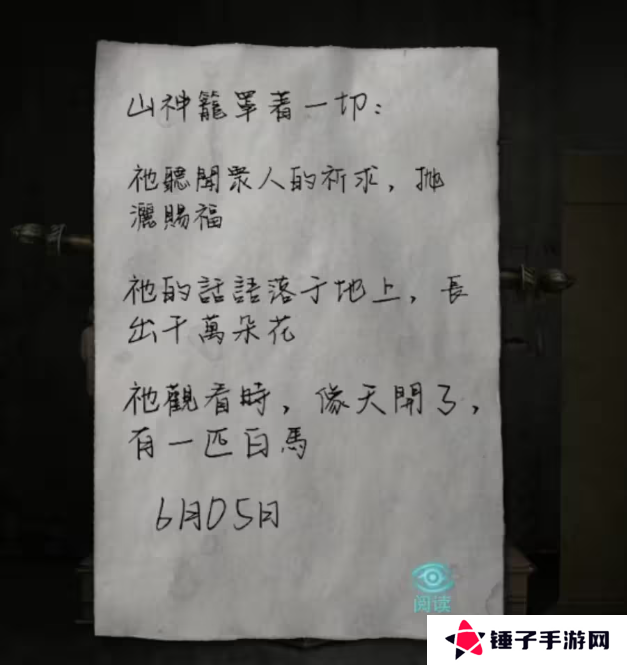 山神籠罩着一切：
祂聽聞眾人的祈求，拋
灑賜福
祂的話語落于地上，長
出千萬朵花
祂觀看時，像天開了，
有一匹白馬
6月05日
阅读
锤子手游网